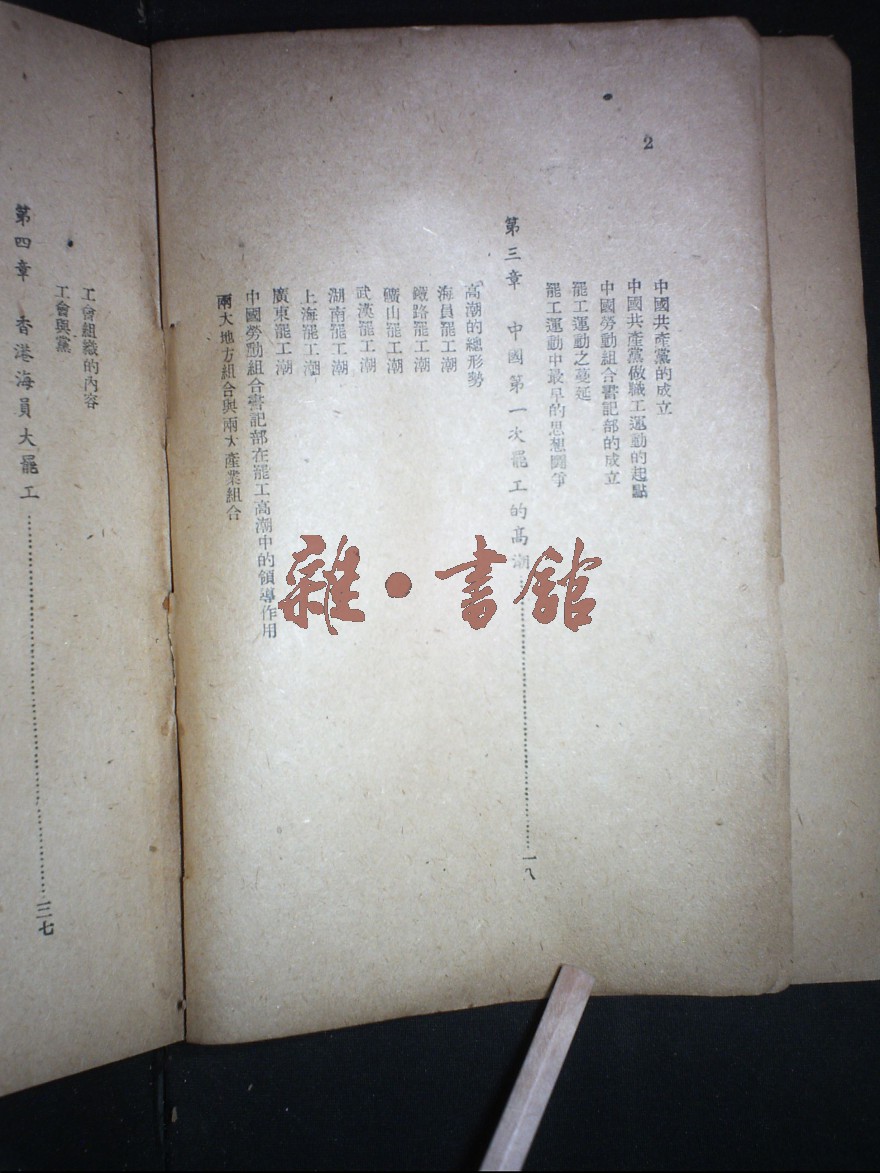 2
中國共產黨的成立
中國共產黨做職工運動的起點
中國勞動組合書記部的成立
罷工運動之蔓延
罷工運動中最早的思想鬪爭
第三章 中國第一次罷工的高潮……一八
高潮的總形勢
海員罷工潮
鐵路罷工潮
礦山罷工潮
武漢罷工潮
湖南罷工潮
上海罷工潮
廣東罷工潮
中國勞動組合書記部在罷工高潮中的領導作用
兩大地方組合與兩大產業組合
工會組織的內容
工會與黨
第四章 香港海員大罷工……三七
雜·書館